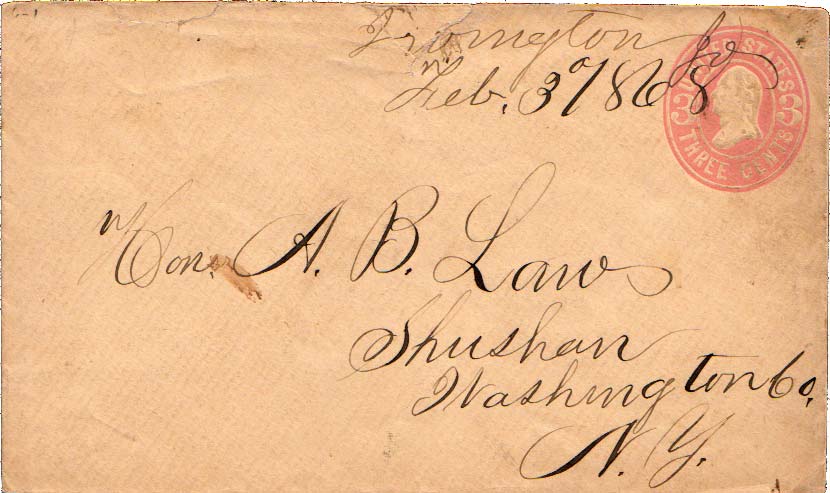 Irvington Io
Feb. 3 1868
UNITED STATES
3 3
THREE CENTS
Hon. A. B. Laws
Shushan
Washington Co.
N. Y.